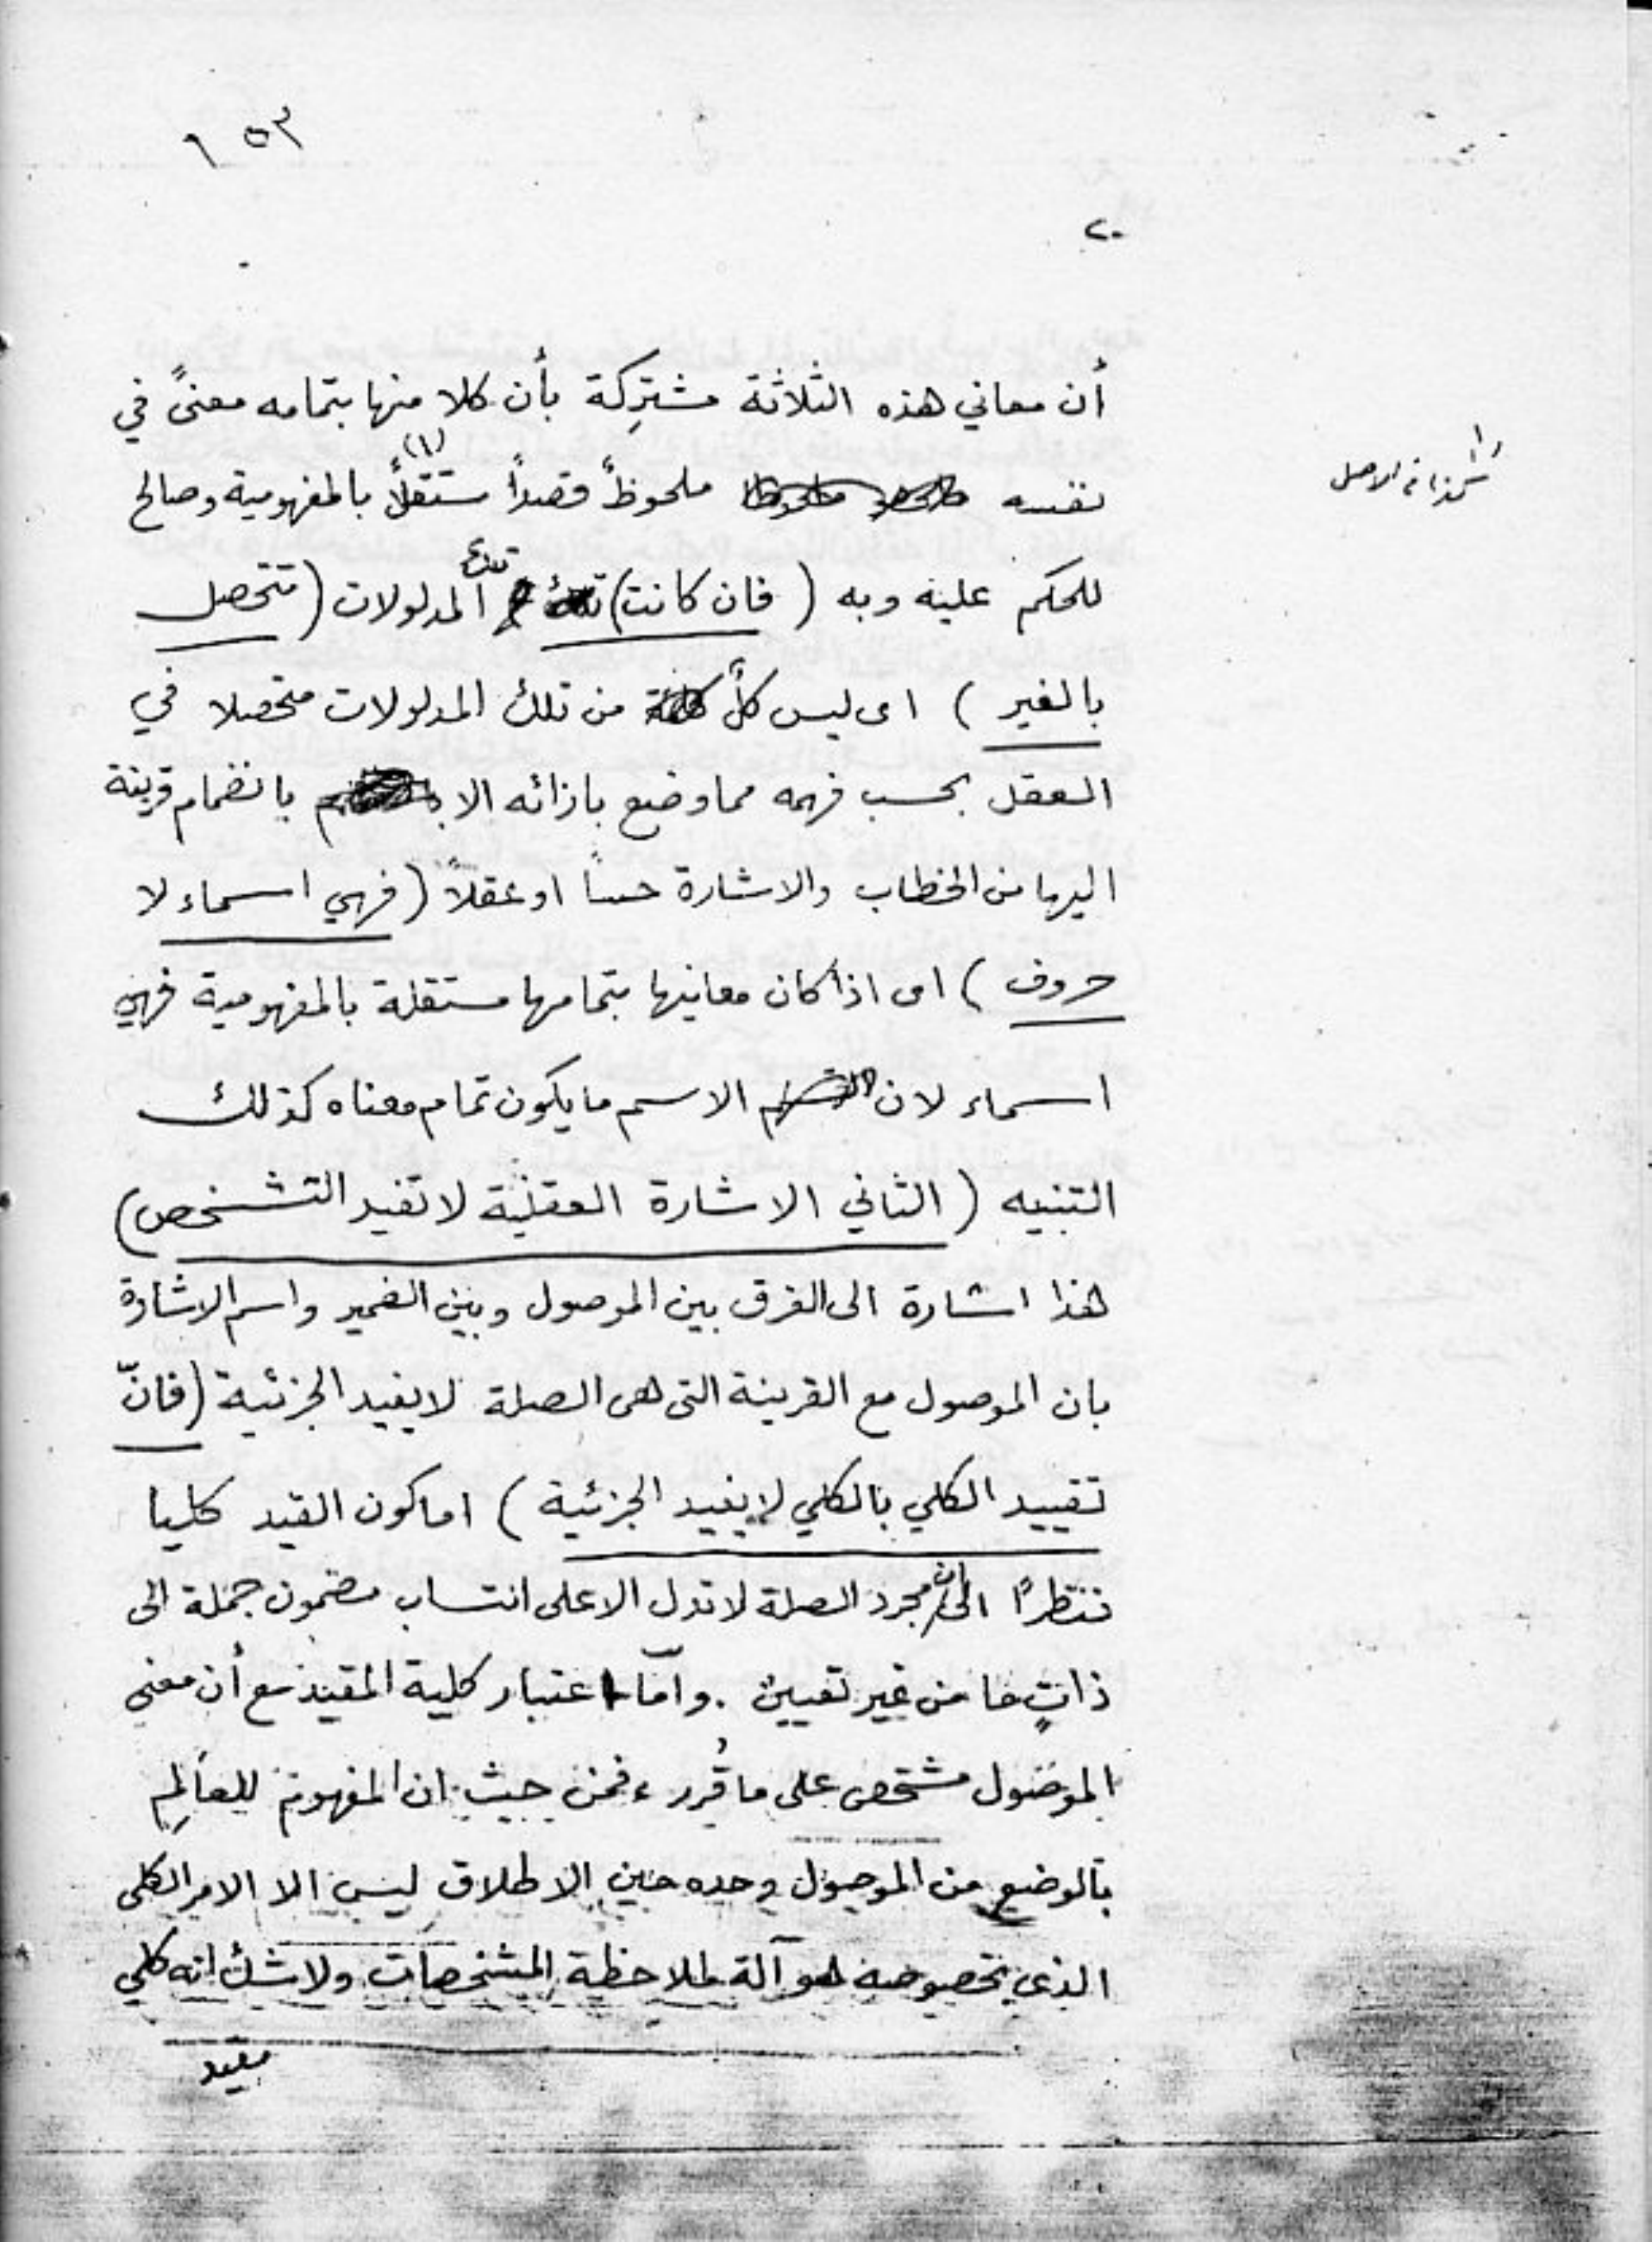 ١٥٣
٢٠
أن معاني هذه الثلاثة مشتركة بأن كلا منها بتمامه معنىً في
نفسه ملحوظاً قصداً مستقلاً (١) بالمفهومية وصالح
للحكم عليه وبه (فان كانت) تلك المدلولات (تتحصل
بالغير) اى ليس كلٌ من تلك المدلولات متحصلا في
العقل بحسب فهمه مما وضع بازائه الا بانضمام قرينة
اليها من الخطاب والاشارة حساً او عقلاً (فهي اسماء لا
حروف) اى اذا كان معانيها بتمامها مستقلة بالمفهومية فهي
اسماء لان الاسم ما يكون تمام معناه كذلك
التنبيه (الثاني الاشارة العقلية لا تفيد التشخص)
هذا اشارة الى الفرق بين الموصول وبين الضمير واسم الاشارة
بان الموصول مع القرينة التى هى الصلة لا يفيد الجزئية (فانّ
تقييد الكلي بالكلي لا يفيد الجزئية) اما كون القيد كليا
فنظراً الى ان مجرد الصلة لا تدل الا على انتساب مضمون جملة الى
ذاتٍ ما من غير تعيين . وامّا اعتبار كلية المقيد مع أن معنى
الموصول مشخص على ما قُرر ، فمن حيث ان المفهوم للعالِم
بالوضع من الموصول وحده حين الاطلاق ليس الا الامر الكلى
الذي بخصوصه هو آلة لملاحظة المشخصات ولا شك انه كلي
مقيد
(١) كذا فى الاصل